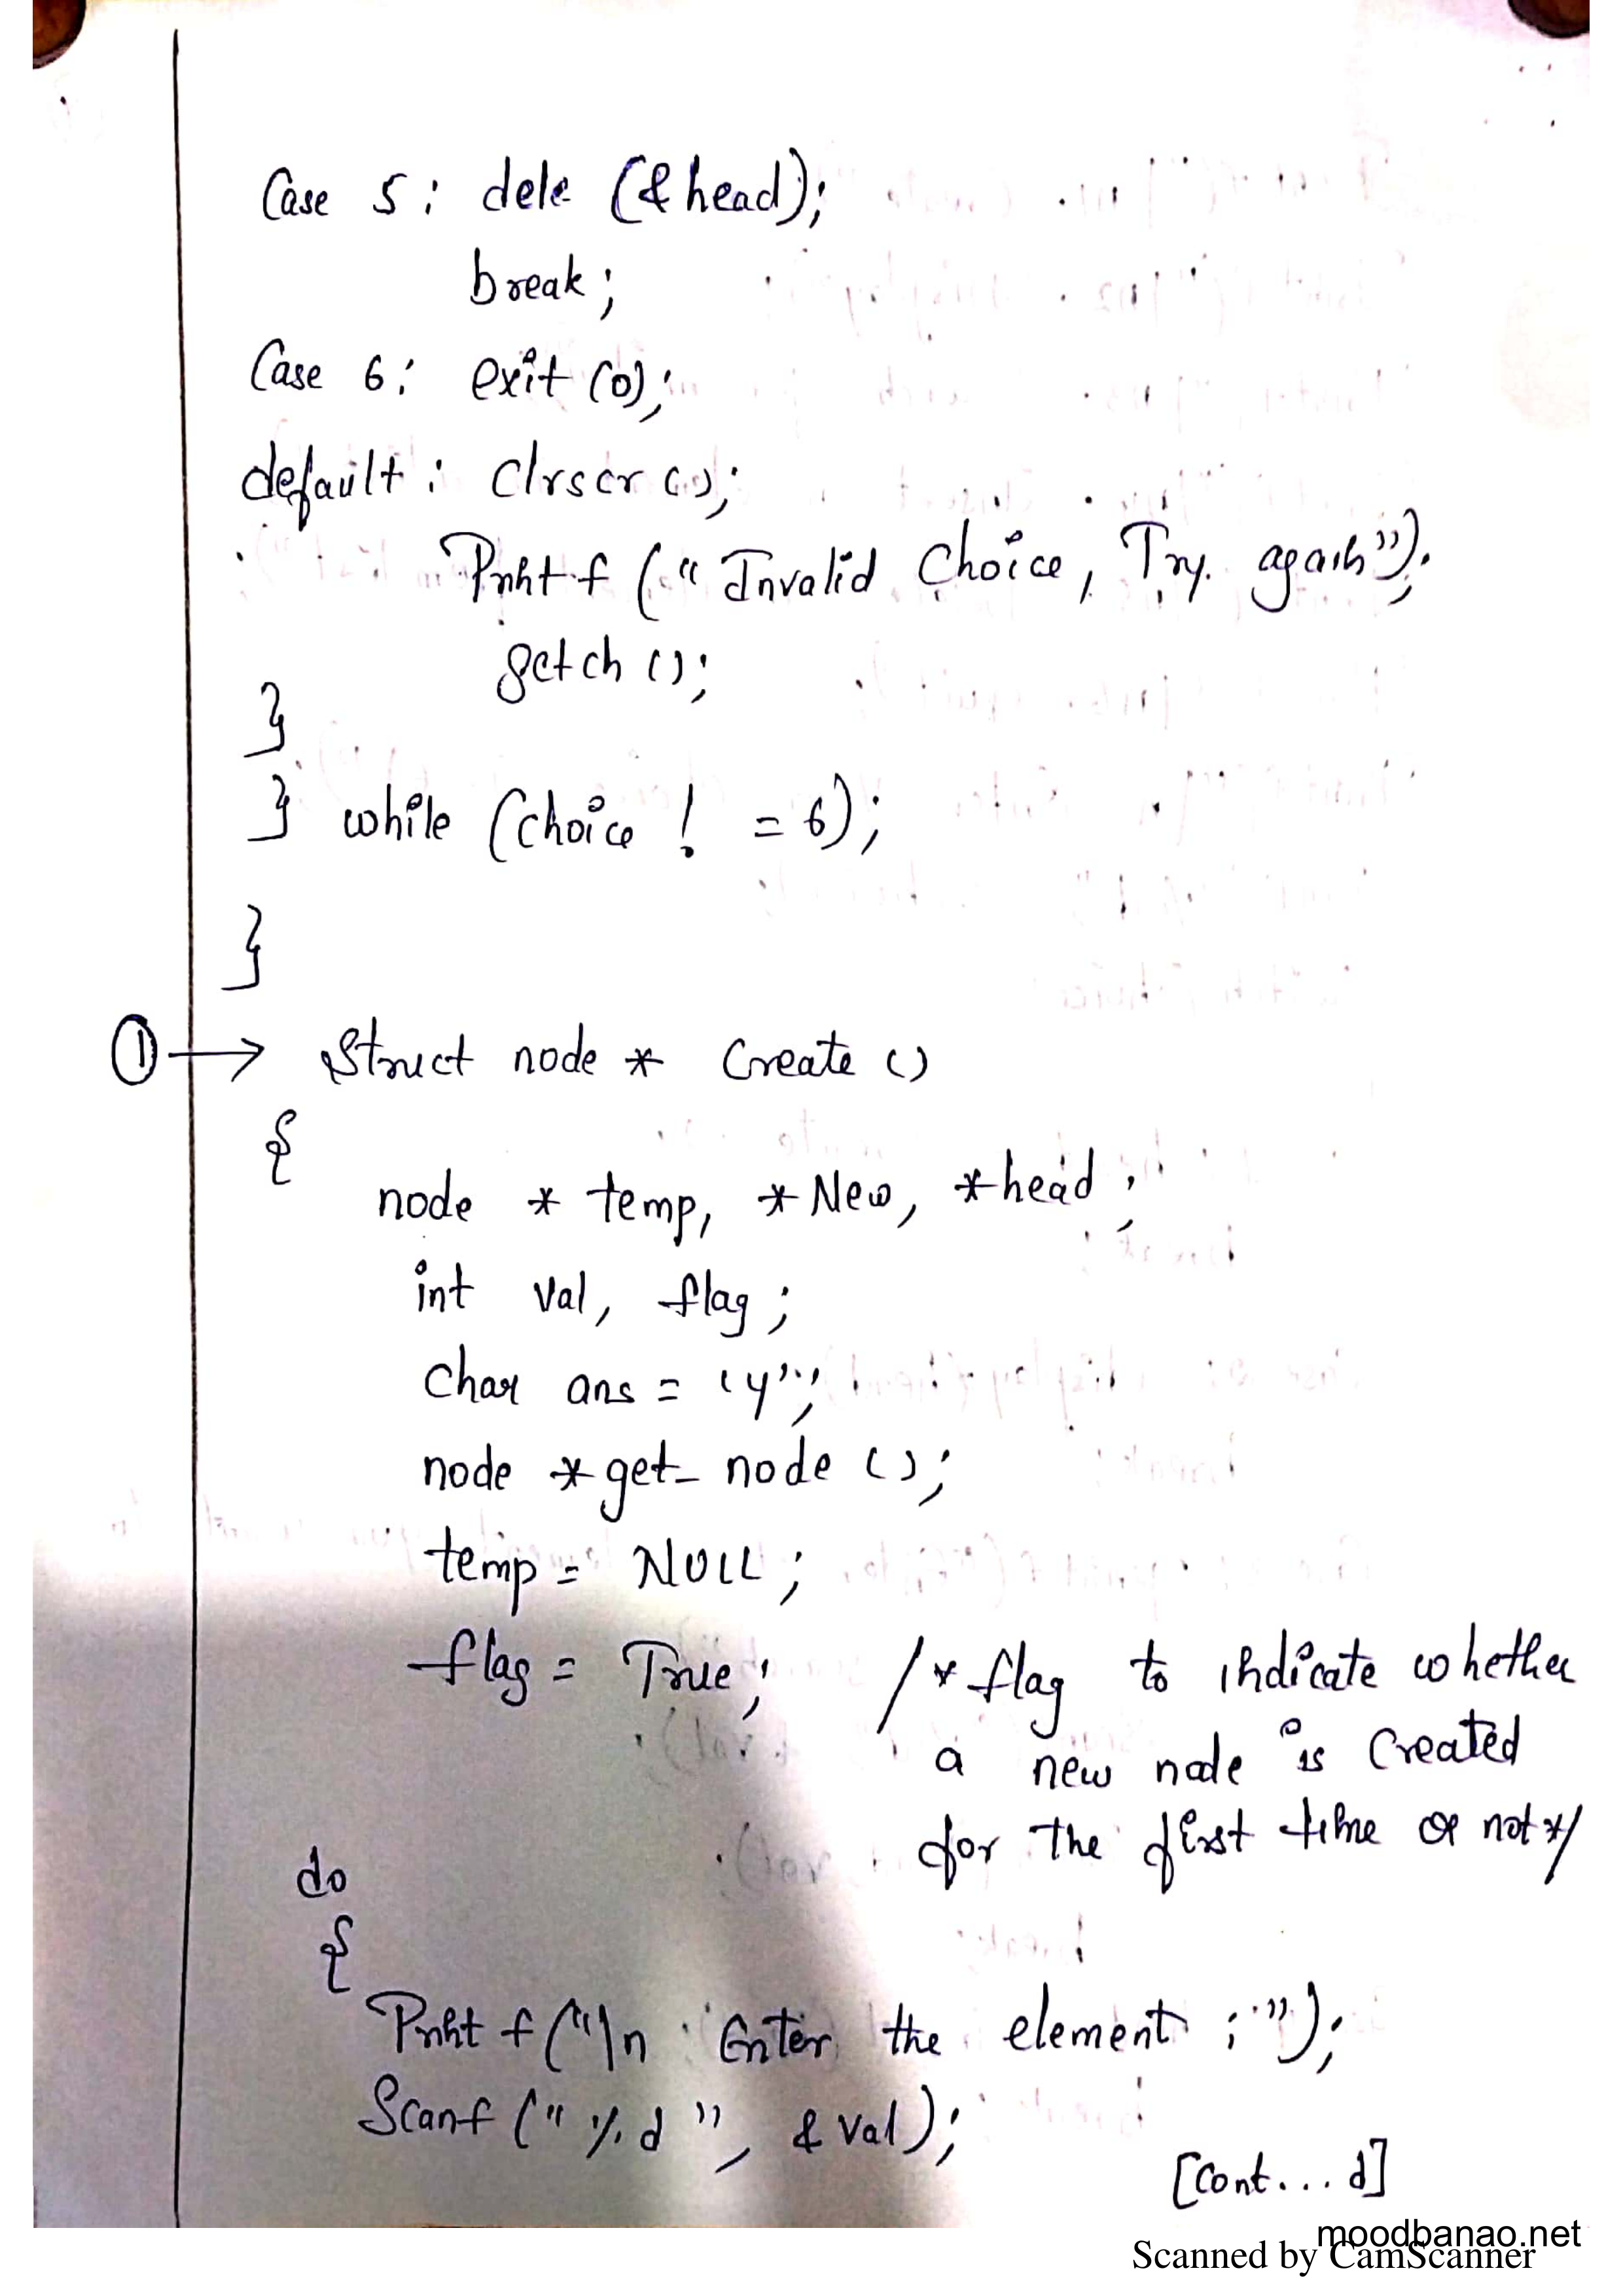 Case 5: dele (&head);
break;
Case 6: exit (0);
default: Clrscr ();
Printf ("Invalid Choice, Try. again");
getch ();
}
} while (choice ! = 6);
}
① → Struct node * Create ()
{
node * temp, * New, *head;
int val, flag;
Char ans = 'y';
node *get_ node ();
temp = NULL;
flag = True; /* flag to indicate whether
a new node is Created
for the first time or not */
do
{
Printf ("\n Enter the element ; ");
Scanf (" %d ", & val);
[Cont... d]
moodbanao.net
Scanned by CamScanner